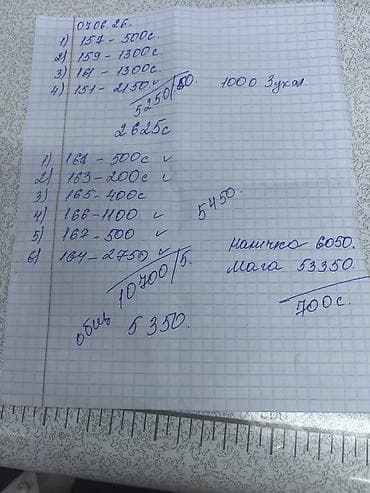 07.06.26.
1) 157 - 500с.
2) 159 - 1300с.
3) 161 - 1300с.
4) 151 - 2150 ✓
5250/50.
2625с
1000 Зухол
1) 161 - 500с ✓
2) 163 - 200с ✓
3) 165 - 400с
4) 166 - 1100 ✓
5) 167 - 500 ✓
6) 164 - 2750 ✓
10700/5.
5450.
Наличка 6050.
Мага 53350.
700с.
общ 5350.